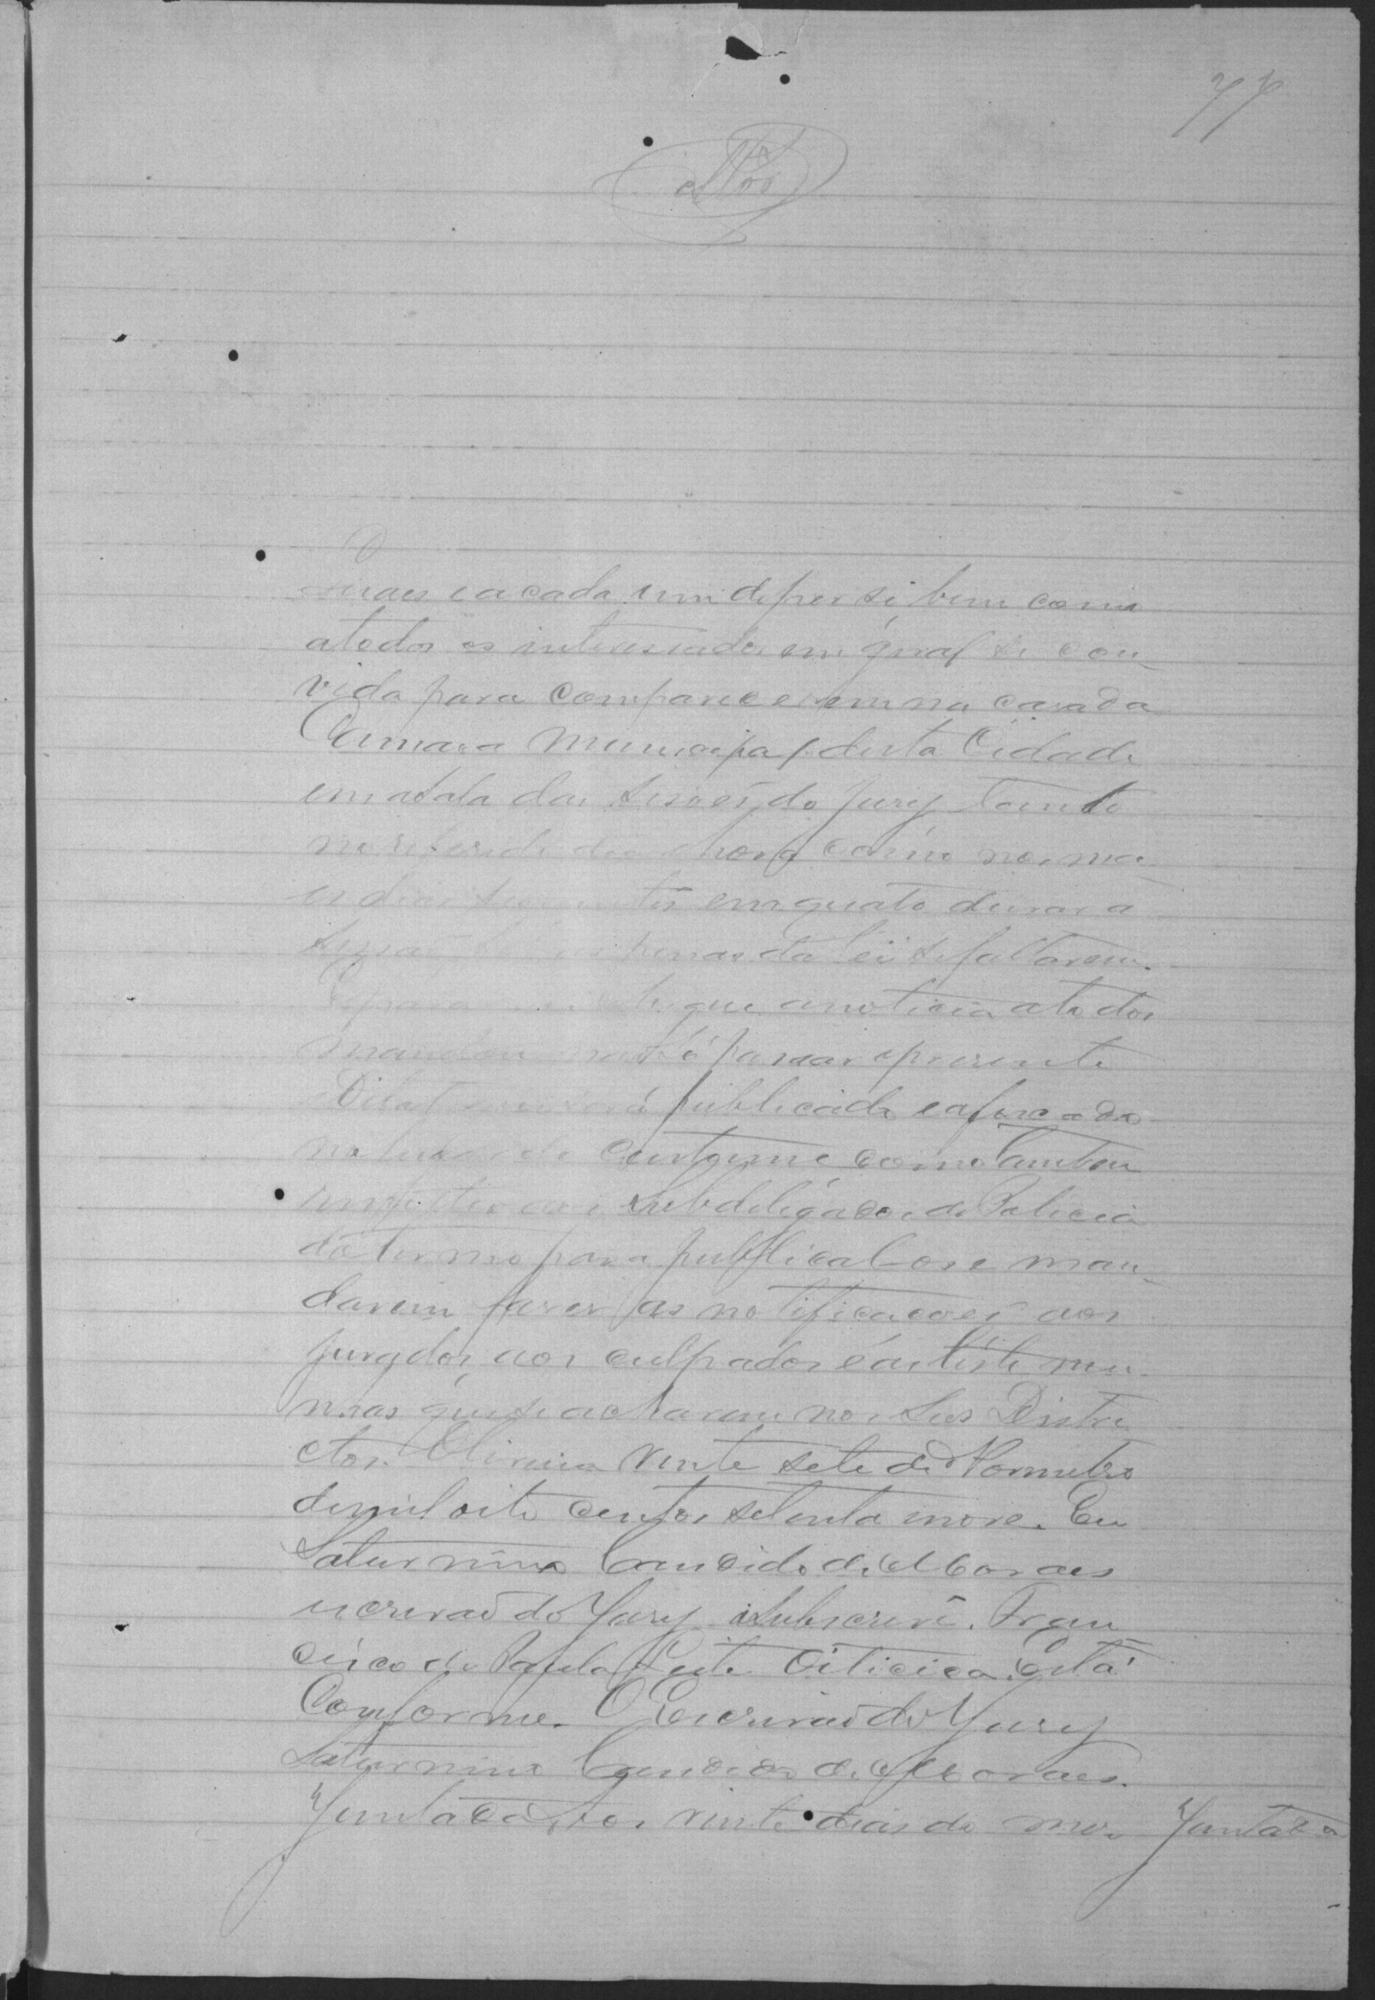 77
quaes e a cada um de per si bem como
a todos os interessados em geral se con-
vida para comparecerem na casa da
Camara Municipal desta Cidade
em a sala das sessoēs do Jury tanto
no referido dia e hora como nos ma-
is dias seguintes emquato durar a
sessaõ sob as penas da lei se faltarem.
E para que a noticia a todos
mandou naõ só passar o presente
Edital que será publicado e afixcado
no lugar do custume como tambem
aos Subdelegados de Policia
do termo para publical-os e man-
darem fazer as notificacoēs aos
jurados, aos culpados e as teste mu-
nhas que se acharem nos seus Distri
ctos. vinte sete de Novembro
de mil oito centos setenta e nove. Eu
Saturnino Candido de Moraes
escrivaõ do Jury subscrevi. Fran
cisco de Paula Leite Oiticica. Está
Conforme. O Escrivaõ do Jury
Saturnino Candido de Moraes.
Juntada Aos vinte dias do mes Juntada